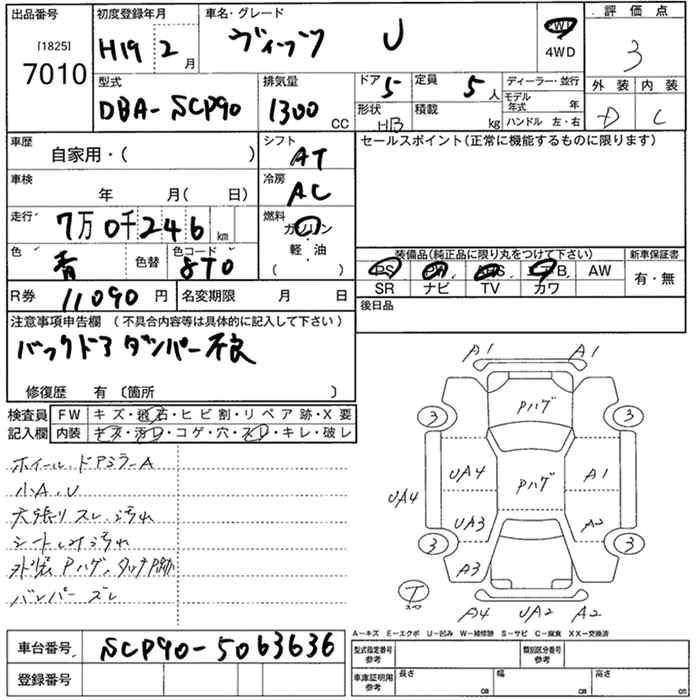 出品番号 初度登録年月 車名・グレード 評価点
[1825] H19 2月 ヴィッツ U 2WD 3
7010 4WD
型式 排気量 ドア 5 定員 5人 ディーラー・並行 外装 内装
DBA-SCP90 1300 CC 形状 HB 積載 kg モデル年式 年 D C
ハンドル 左・右
車歴 シフト セールスポイント(正常に機能するものに限ります)
自家用・( ) AT
車検 冷房
年 月( 日) AC
走行 7万0千246 km 燃料 ガソリン
軽・油
( )
色 青 色替 色コード 8T0 装備品(純正品に限り丸をつけて下さい) 新車保証書
PS PW ABS エアB AW 有・無
SR ナビ TV カワ
R券 11090 円 名変期限 月 日 後日品
注意事項申告欄 (不具合内容等は具体的に記入して下さい)
バックドアダンパー不良
修復歴 有 〔箇所 〕
検査員 FW キズ・飛石・ヒビ割・リペア跡・X要
記入欄 内装 キズ・汚レ・コゲ・穴・スレ・キレ・破レ
ホイール、ドアミラーA
小A、U
天張りスレ、汚れ
シートしみ汚れ
外装Pハゲ、タッチP跡
バンパースレ
A1 A1
Pハゲ
3 3
UA4 Pハゲ A1
UA4
UA3 A2
3 3
A3
T
スペア
A4 UA2 A2
A-キズ E-エクボ U-凹み W-補修跡 S-サビ C-腐食 XX-交換済
車台番号 SCP90-5063636 型式指定番号 参考 類別区分番号 参考
登録番号 車庫証明用 参考 長さ cm 幅 cm 高さ cm